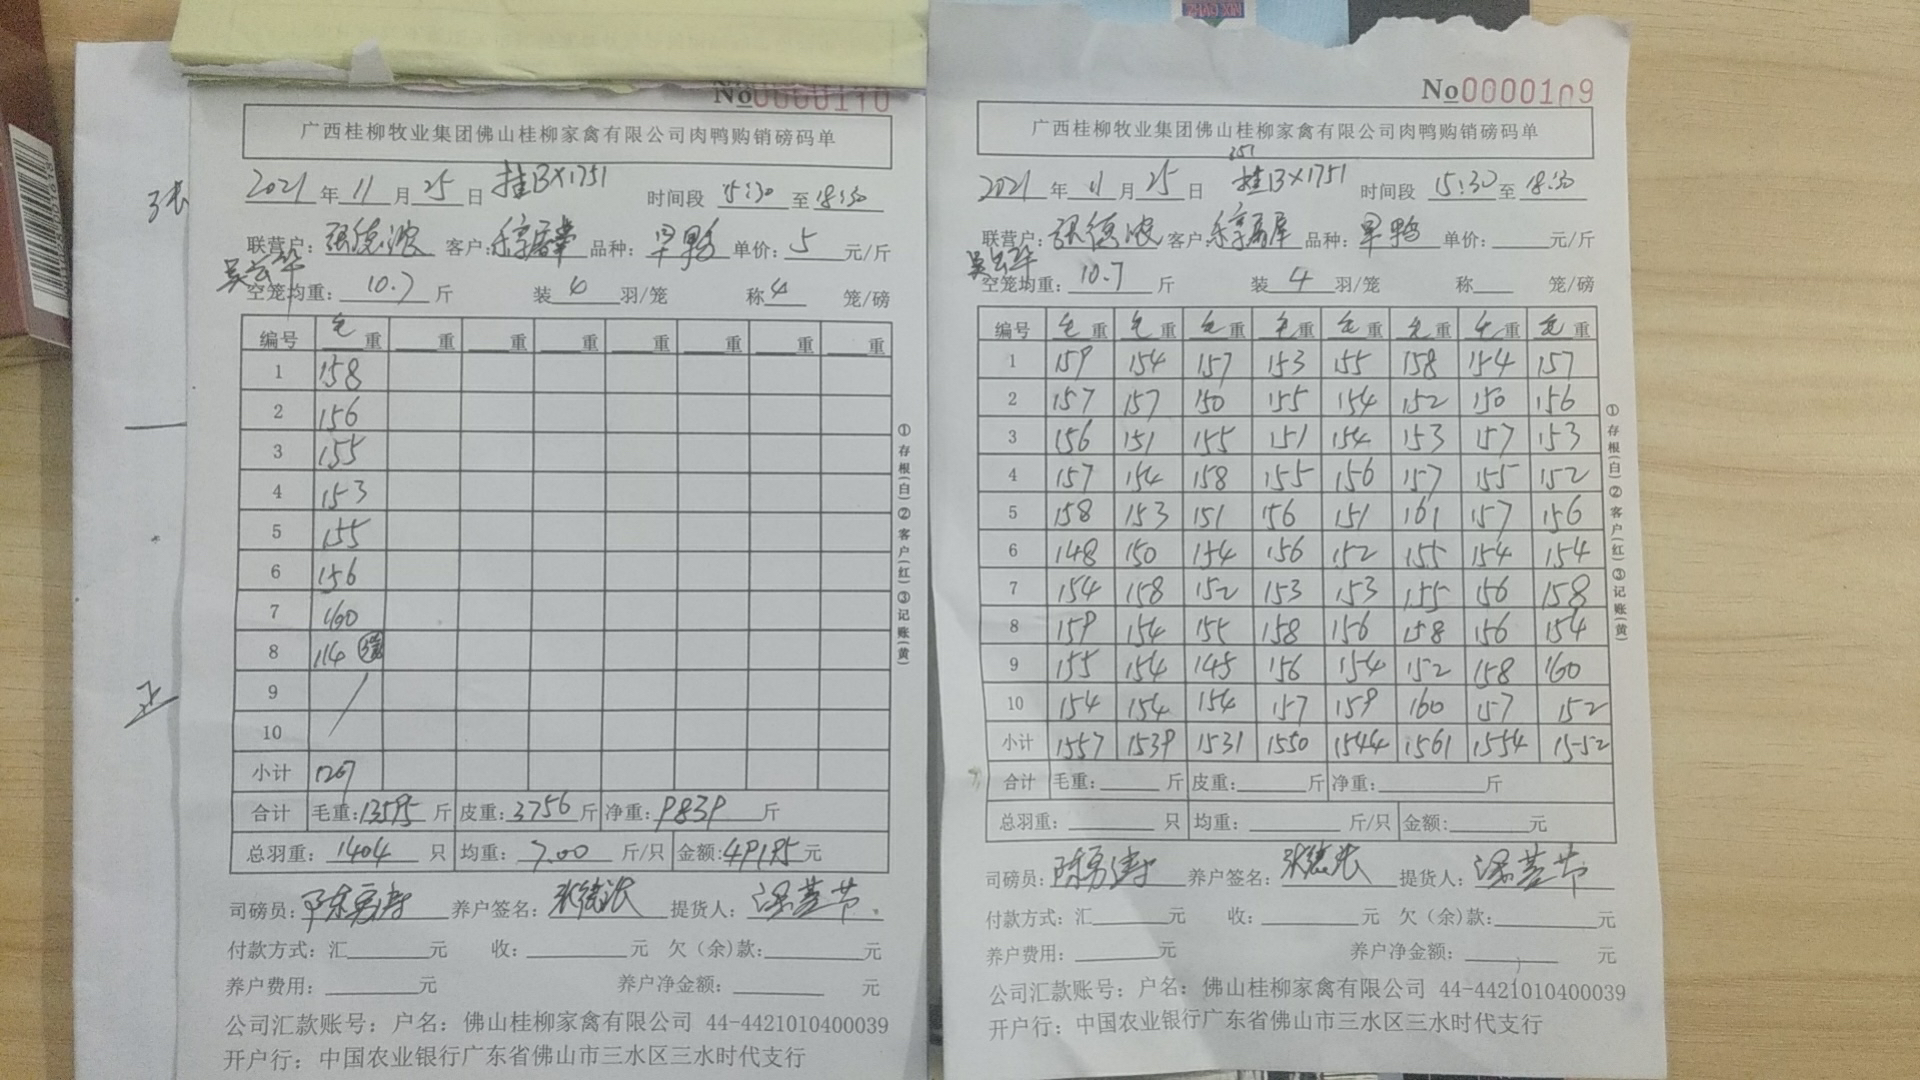 No0000110
广西桂柳牧业集团佛山桂柳家禽有限公司肉鸭购销磅码单
2021年11月25日 桂BX1751 时间段 15:30至18:30
联营户: 张德浓 客户: 品种: 旱鸭 单价: 5 元/斤
吴云华
空笼均重: 10.7 斤 装 4 羽/笼 称 4 笼/磅
编号 毛重 重 重 重 重 重 重 重
1 158
2 156
3 155
4 153
5 155
6 156
7 160
8 114
9
10
小计 1207
合计 毛重: 13595 斤 皮重: 3756 斤 净重: 9839 斤
总羽重: 1404 只 均重: 7.00 斤/只 金额: 49195 元
司磅员: 养户签名: 张德浓 提货人:
付款方式: 汇 元 收: 元 欠(余)款: 元
养户费用: 元 养户净金额: 元
公司汇款账号: 户名: 佛山桂柳家禽有限公司 44-4421010400039
开户行: 中国农业银行广东省佛山市三水区三水时代支行
①存根(白)②客户(红)③记账(黄)
3张
正
No0000109
广西桂柳牧业集团佛山桂柳家禽有限公司肉鸭购销磅码单
351
2021年11月25日 桂BX1751 时间段 15:30至18:30
联营户: 张德浓 客户: 品种: 旱鸭 单价: 元/斤
吴云华
空笼均重: 10.7 斤 装 4 羽/笼 称 笼/磅
编号 毛重 毛重 毛重 毛重 毛重 毛重 毛重 毛重
1 159 154 157 153 155 158 154 157
2 157 157 150 155 154 152 150 156
3 156 151 155 151 154 153 157 153
4 157 154 158 155 156 157 155 152
5 158 153 151 156 151 161 157 156
6 148 150 154 156 152 155 154 154
7 154 158 152 153 153 155 156 158
8 159 154 155 158 156 158 156 154
9 155 154 145 156 154 152 158 160
10 154 154 154 157 159 160 157 152
小计 1557 1539 1531 1550 1544 1561 1554 1552
合计 毛重: 斤 皮重: 斤 净重: 斤
总羽重: 只 均重: 斤/只 金额: 元
司磅员: 养户签名: 张德浓 提货人:
付款方式: 汇 元 收: 元 欠(余)款: 元
养户费用: 元 养户净金额: 元
公司汇款账号: 户名: 佛山桂柳家禽有限公司 44-4421010400039
开户行: 中国农业银行广东省佛山市三水区三水时代支行
①存根(白)②客户(红)③记账(黄)